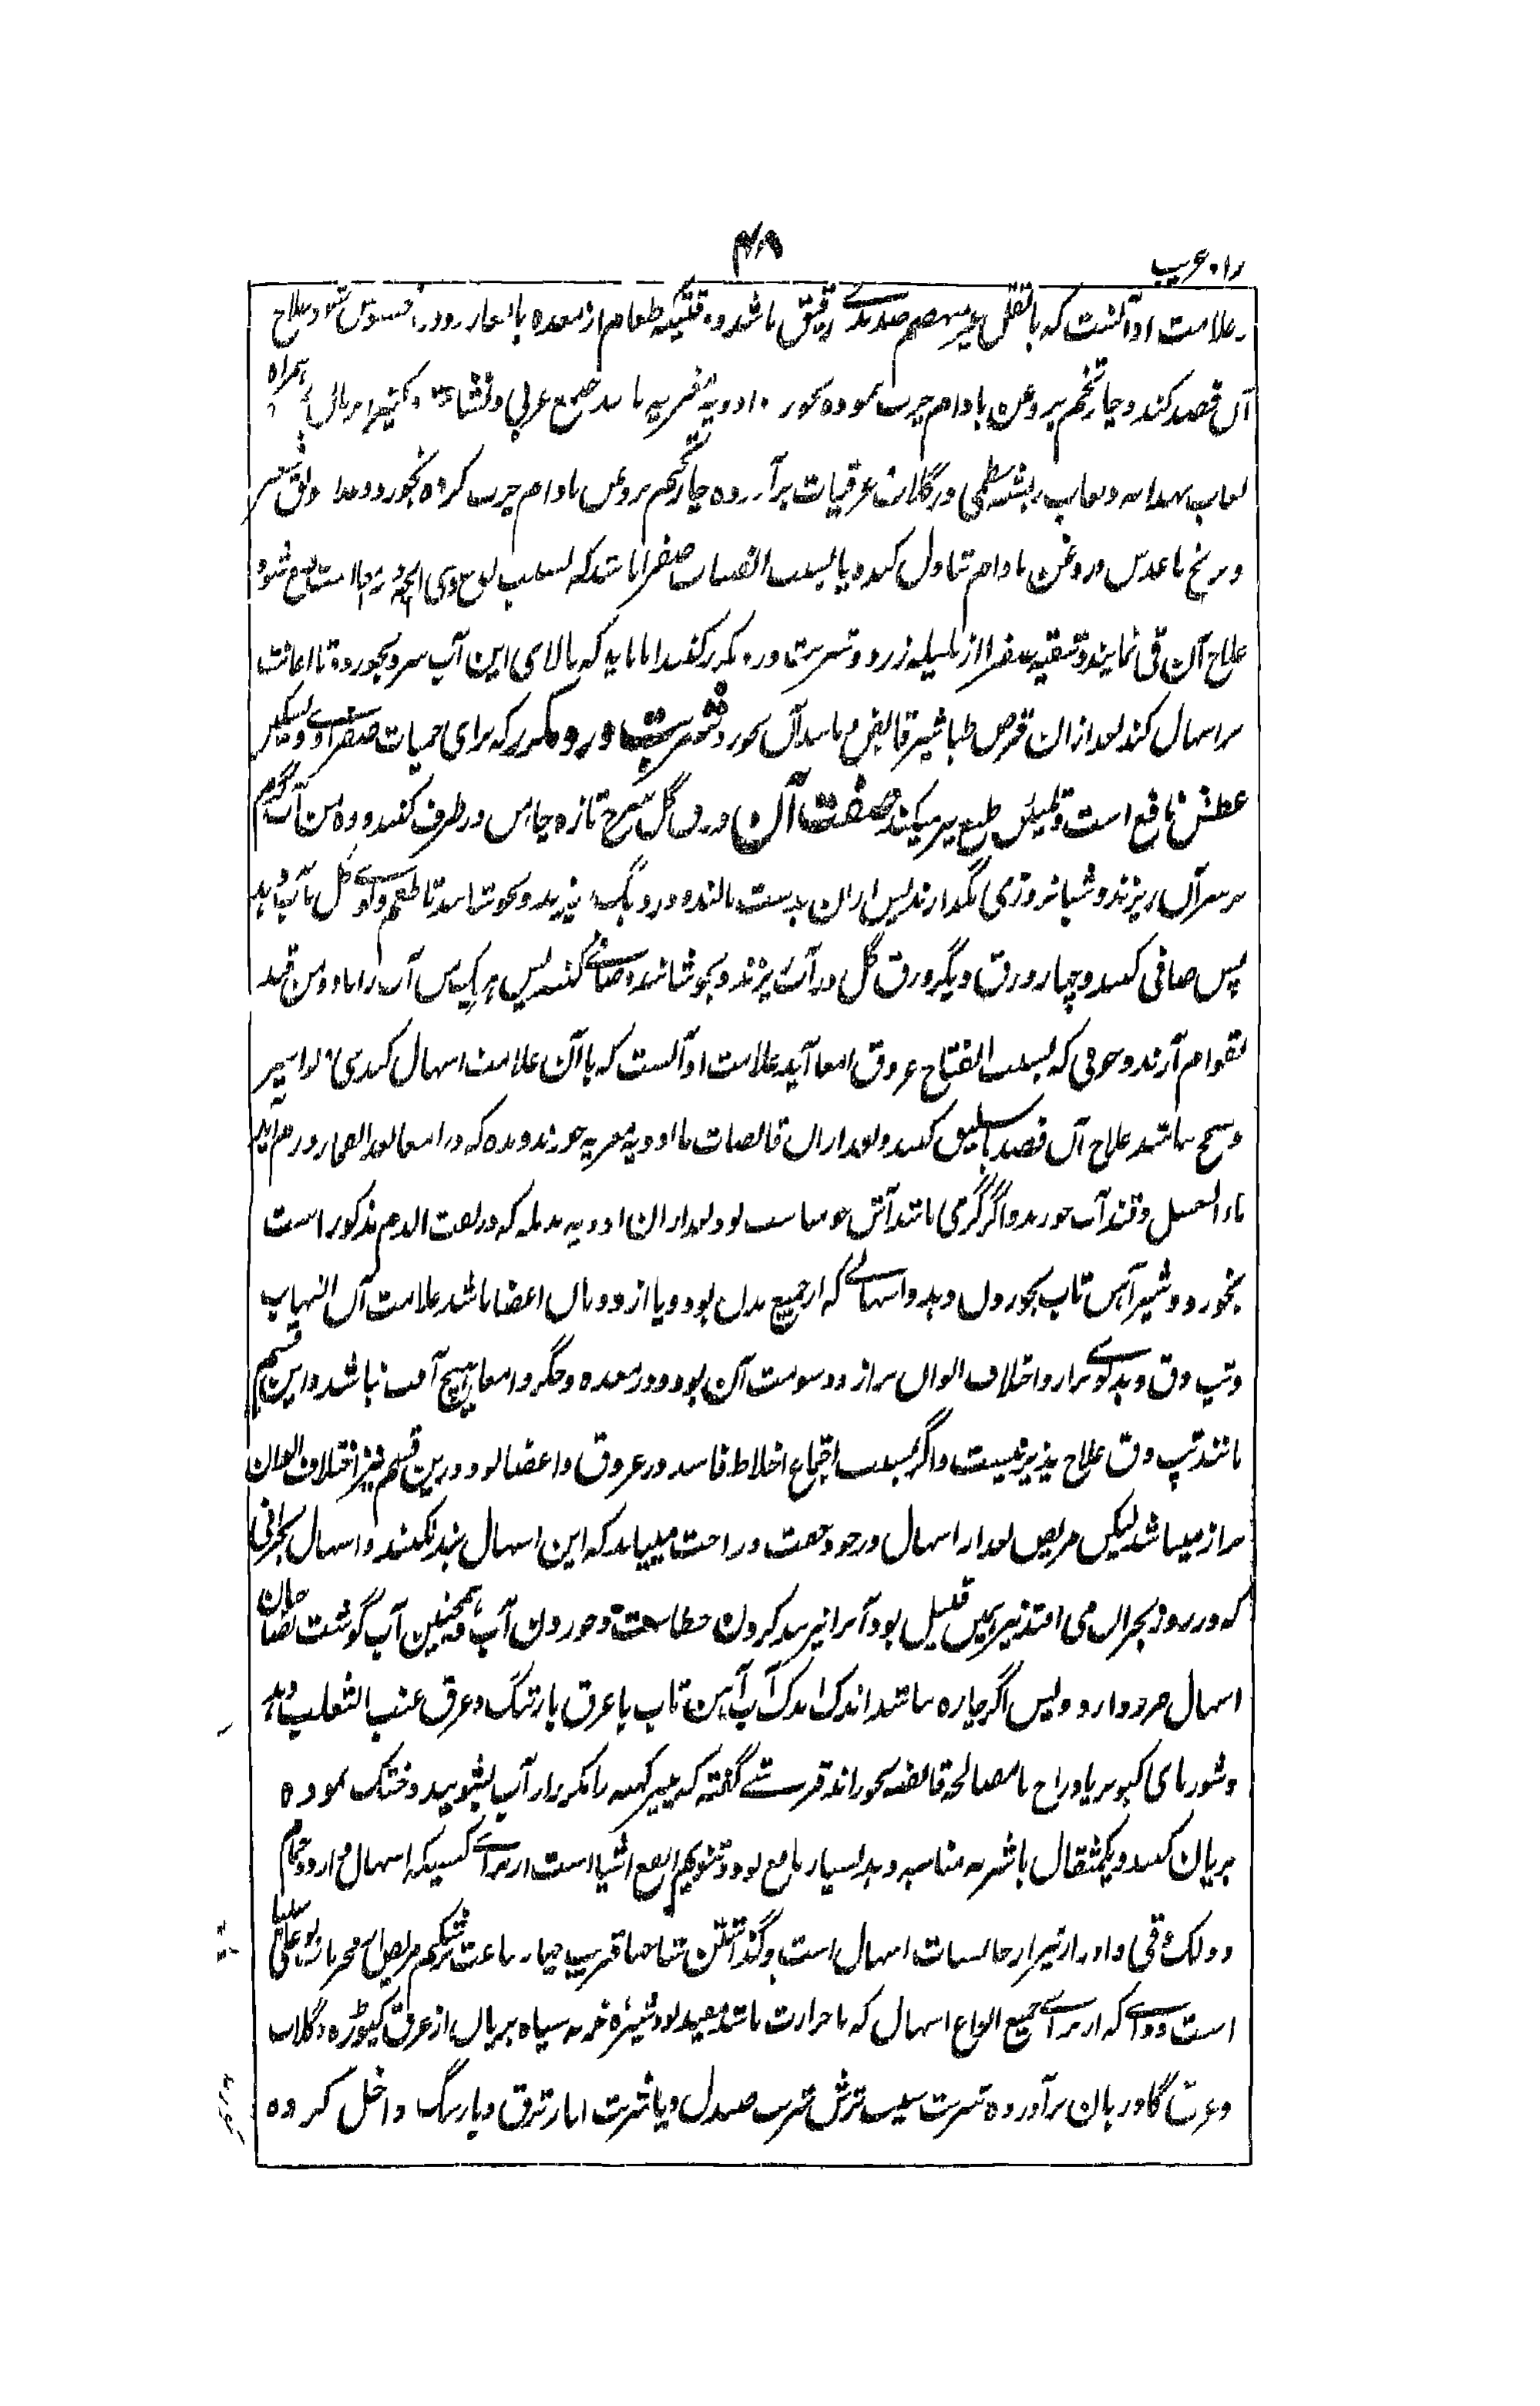 زاد غریب
۴۸
علامت او آنست که با ثقل غیر منهضم صدیدے رقیق باشد وقتیکه طعام از معده بامعا رود محسوس شود علاج
آن فصد کند و چار تخم بروغن بادام چرب نموده بخورد ادویۀ مغریه مانند صمغ عربی و نشاسته و کتیرا بریان همراه
لعاب بهدانه و لعاب ریشۀ خطمی در گلاب عرقیات برآورده چار تخم بروغن بادام چرب کرده بخورد و غذا
و برنج با عدس و روغن بادام تناول کند و یا بسبب انصباب صفرا باشد که بسبب
علاج آن قی نمایند و تنقیه صفرا از هلیله زرد و شربت ورد مکرر کنند اما باید که بالای این آب سرد بخورد تا اعانت
بر اسهال کند بعد ازان قرص طباشیر قابض و مانند آن بخورد شربت ورد مکرر که برای حمیات صفراوے و تسکین
عطش نافع است و تلیین طبع نیز میکند صفت آن ورق گل سرخ تازه چهار من در ظرف کنند و ده من آب گرم
بر سر آن ریزند و شبانروزی نگدارند پس ازان بدست مالنده در دیگ بزیند و بجوشانند تا طعم و بوے گل بآب دهد
پس صافی کنند و چهار ورق دیگر ورق گل در آب ریزند و بجوشانند و صافے کنند پس هر یک من آب را با دو من قند
بقوام آرند و خونی که بسبب انفتاح عروق امعا آید علامت او آنست که با آن علامت اسهال کبدی و بواسیر
و سحج نباشد علاج آن فصد باسلیق کنند و بعد ازان قابضات با ادویۀ مغریه خورند و مده که در امعا بعد انفجار ورم آید
ماء العسل و قند آب خورند و اگر گرمی باشد آش جو مناسب بود و بعد ازان ادویه مدمله که در نفث الدم مذکور است
بخورد و شیر آهن تاب بخوردن دهد و اسهالے که از جمیع بدن بود و یا از ذوبان اعضا باشد علامت آن التهاب
و تپ دق و بدبوے براز و اختلاف الوان براز و دسومت آن بود و در معده و جگر و امعا هیچ آفت نباشد و این قسم
مانند تپ دق علاج پذیر نیست و اگر بسبب اجتماع اخلاط فاسد در عروق و اعضا بود و درین قسم نیز اختلاف الوان
براز میباشد لیکن مریض بعد از اسهال در خود خفت و راحت مییابد که این اسهال بند نکنند و اسهال بحرانی
که در روز بحران می افتد نیز همین قبیل بود آنرا نیز بند کردن خطاست و خوردن آب و همچنین آب گوشت بصاحبان
اسهال ضرر دارد و پس اگر چاره نباشد اندک اندک آب آهن تاب یا عرق بارتنگ و عرق عنب الثعلب دهد
و شوربای کبوتر یا دراج با مصالحه قابضه بخورانند قرشے گفته که پنیر کهنه را مکرر در آب بشویند و خشک نموده
بریان کنند و یکمثقال با شربت مناسب دهد بسیار نافع بود و تنویم انفع اشیاست از براے کسیکه اسهال دارد و حمام
و دلک و قی و ادرار نیز از حابسات اسهال است و گذاشتن شاخها قریب چهار ساعت بر شکم مریض از مجربات بوعلی سینا
است دوائے که از براے جمیع انواع اسهال که با حرارت باشد مفید بود شیرۀ خرفه سیاه بریان از عرق کیوڑه و گلاب
و عرق گاوزبان برآورده شربت سیب ترش شربت صندل و یا شربت انار ترش و بارتنگ داخل کرده